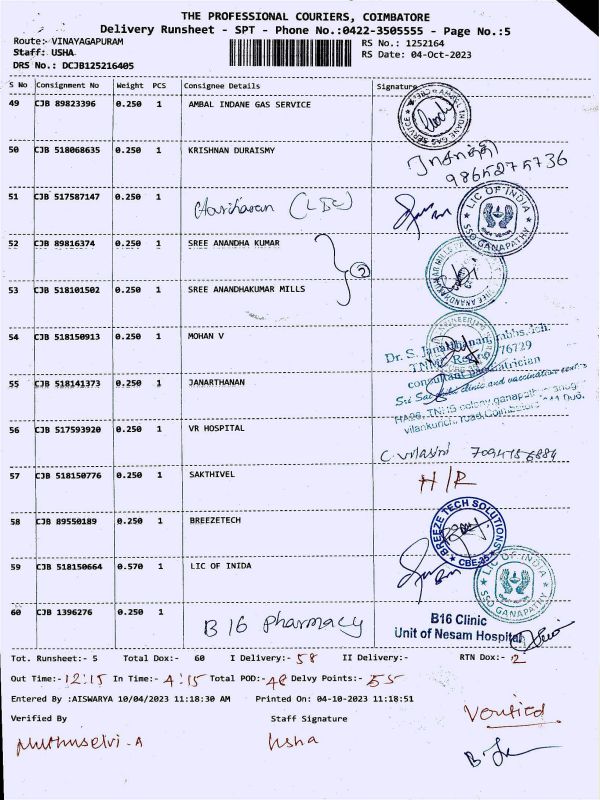 THE PROFESSIONAL COURIERS, COIMBATORE
Delivery Runsheet - SPT - Phone No.:0422-3505555 - Page No.:5
Route:- VINAYAGAPURAM
RS No.: 1252164
Staff: USHA
RS Date: 04-Oct-2023
DRS No.: DCJB125216405
S No Consignment No Weight PCS Consignee Details Signature
49 CJB 89823396 0.250 1 AMBAL INDANE GAS SERVICE
50 CJB 518068635 0.250 1 KRISHNAN DURAISMY
51 CJB 517587147 0.250 1 (LIC)
LIC OF INDIA
SSO GANAPATHY
52 CJB 89816374 0.250 1 SREE ANANDHA KUMAR
2
53 CJB 518101502 0.250 1 SREE ANANDHAKUMAR MILLS
54 CJB 518150913 0.250 1 MOHAN V
55 CJB 518141373 0.250 1 JANARTHANAN
Dr. S. Janarthanan, mbbs,
76729
consultant
Sri Sai clinic and vaccination
56 CJB 517593920 0.250 1 VR HOSPITAL
57 CJB 518150776 0.250 1 SAKTHIVEL H/R
58 CJB 89550189 0.250 1 BREEZETECH
BREEZE TECH SOLUTIONS
59 CJB 518150664 0.570 1 LIC OF INIDA
LIC OF INDIA
SSO GANAPATHY
60 CJB 1396276 0.250 1 B16 pharmacy
B16 Clinic
Unit of Nesam Hospital
Tot. Runsheet:- 5 Total Dox:- 60 I Delivery:- 58 II Delivery:- RTN Dox:- 2
Out Time:- 12:15 In Time:- 4:15 Total POD:- 48 Delvy Points:- 55
Entered By :AISWARYA 10/04/2023 11:18:30 AM Printed On: 04-10-2023 11:18:51
Verified By Staff Signature
Verified
Muthuselvi-A Usha